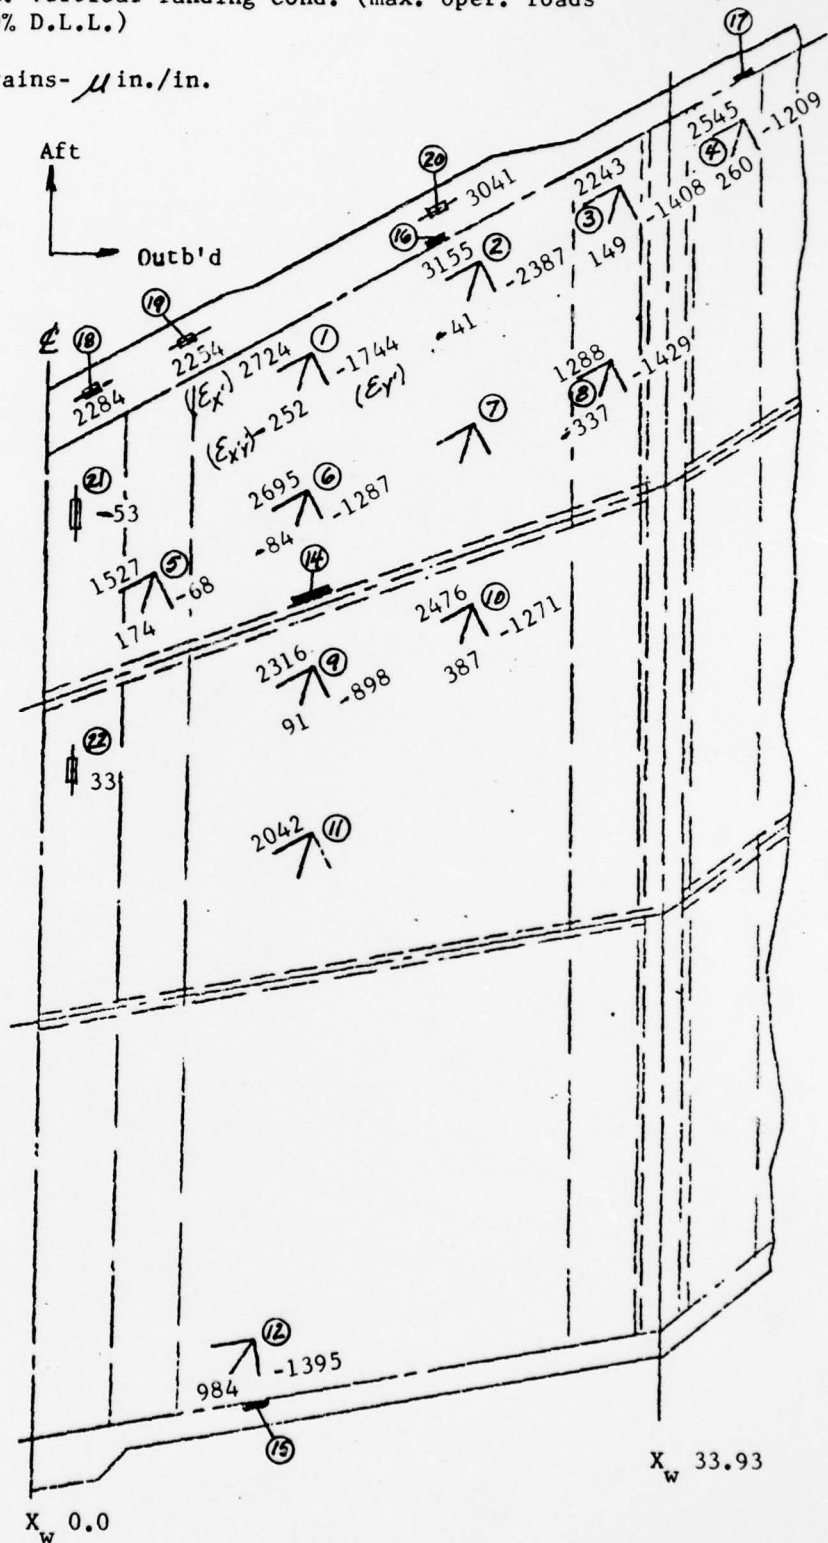 Vertical landing cond. (max. oper. loads
% D.L.L.)
ains- μ in./in.
Aft
Outb'd
17
2545
4
-1209
260
20
3041
2243
3
-1408
149
16
3155
2
-2387
-41
19
2254
℄
18
2284
(εx') 2724
1
-1744
(εy')
(εx'y')-252
1288
8
-1429
-337
7
21
-53
2695
6
-1287
-84
1527
5
-68
174
14
2476
10
-1271
387
2316
9
-898
91
22
33
2042
11
12
984
-1395
15
X_w 33.93
X_w 0.0